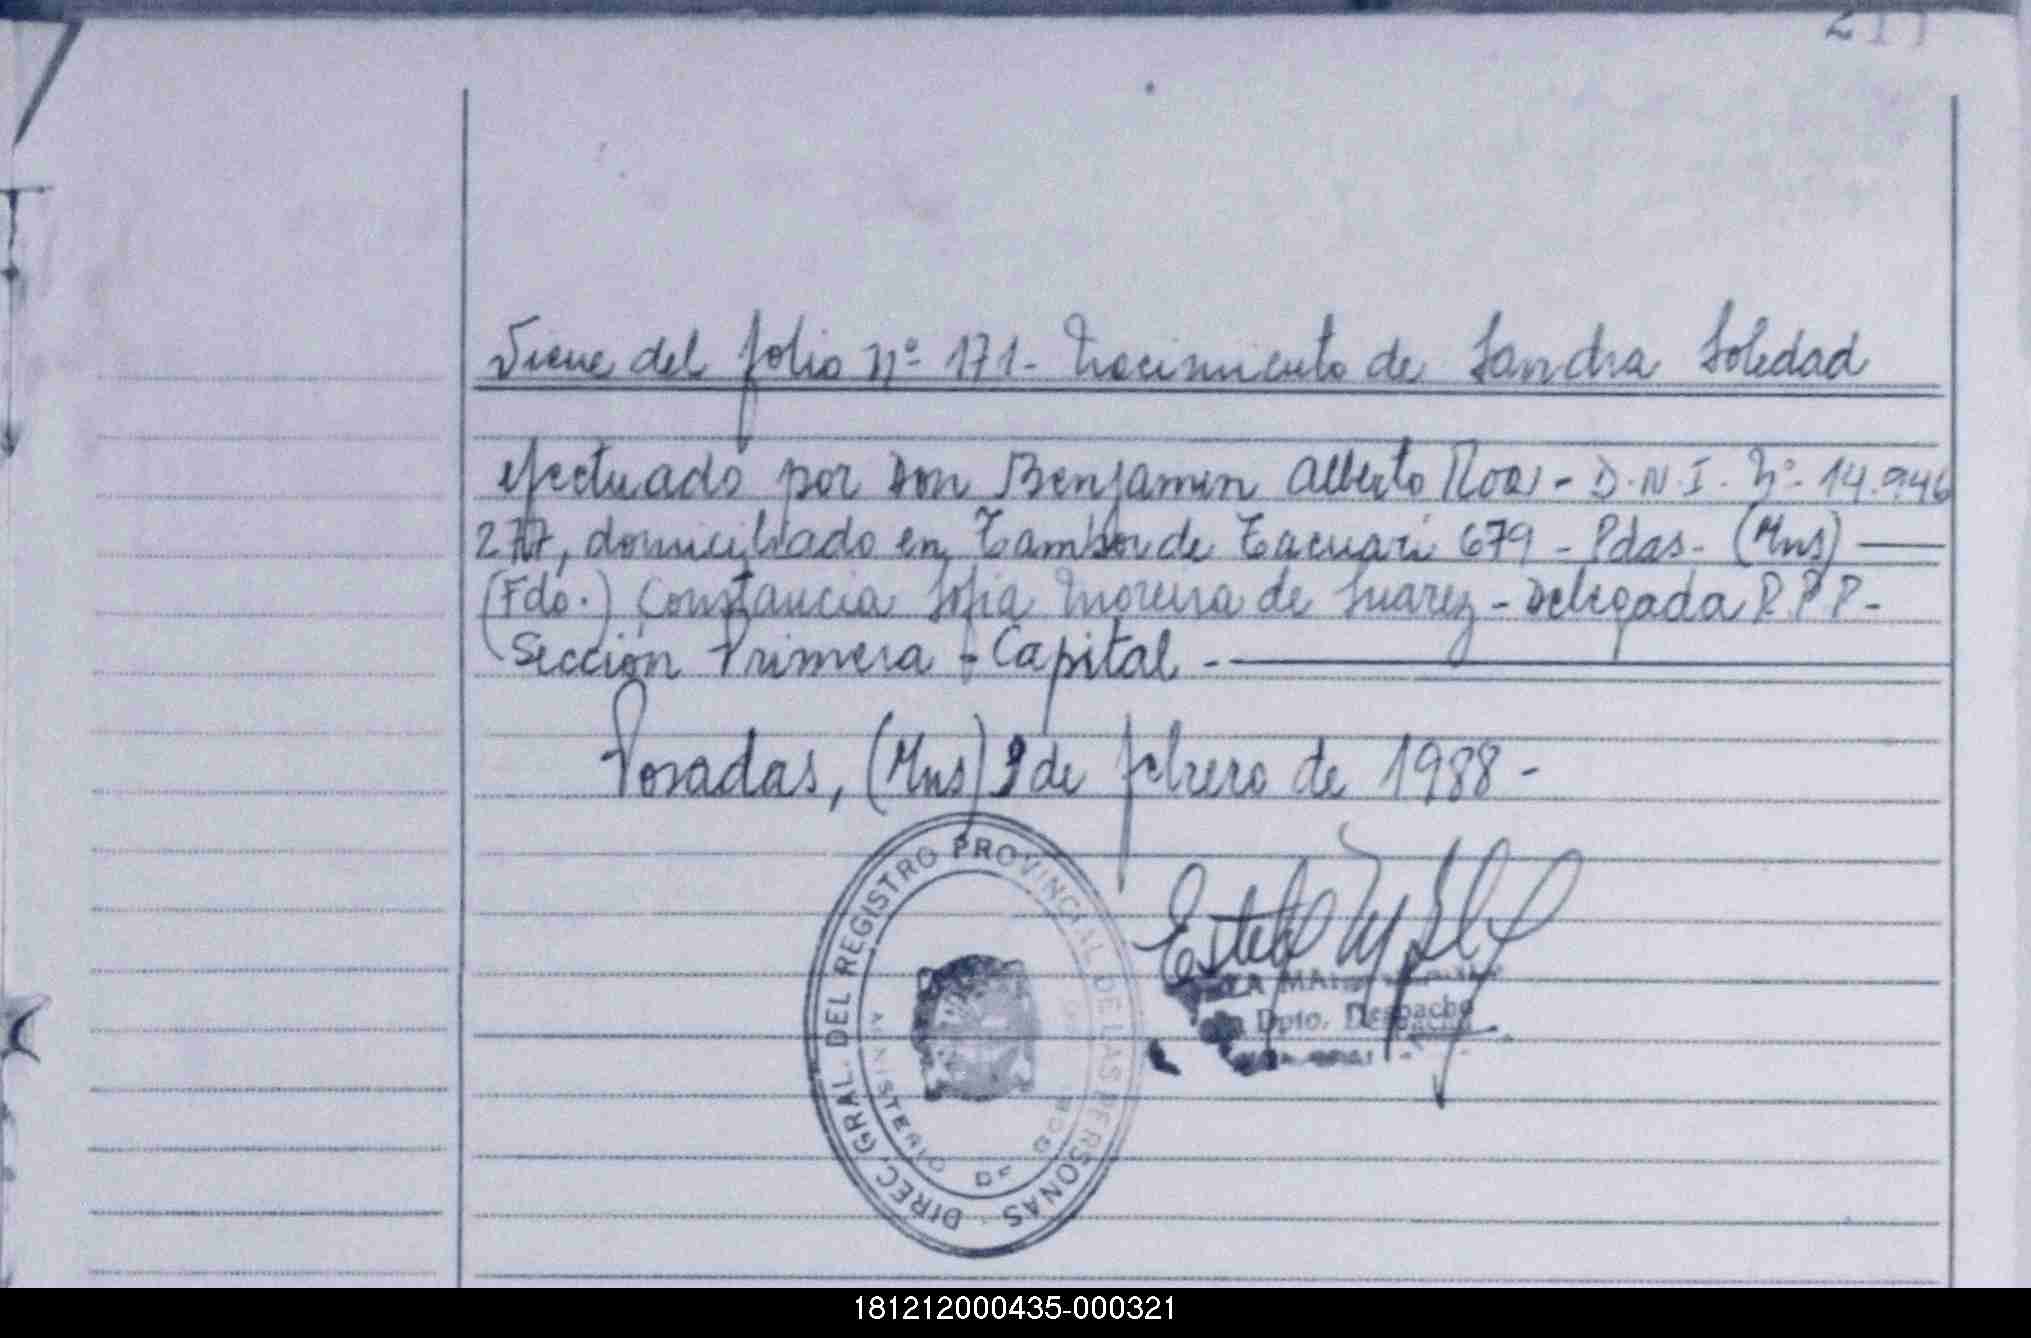 Viene del folio nº 171 - Nacimiento de Sandra Soledad
efectuado por Don Benjamin Alberto Roa - D.N.I. Nº 14.946
277, domiciliado en Tambor de Tacuari 679 - Pdas - (Mns)
(Fdo.) Constancia Sofia Moreira de Suarez - Delegada R.P.P -
Sección Primera - Capital -
Posadas, (Mns) 9 de febrero de 1988 -
DIREC. GRAL. DEL REGISTRO PROVINCIAL DE LAS PERSONAS
MINISTERIO DE
Dpto. Despacho
181212000435-000321